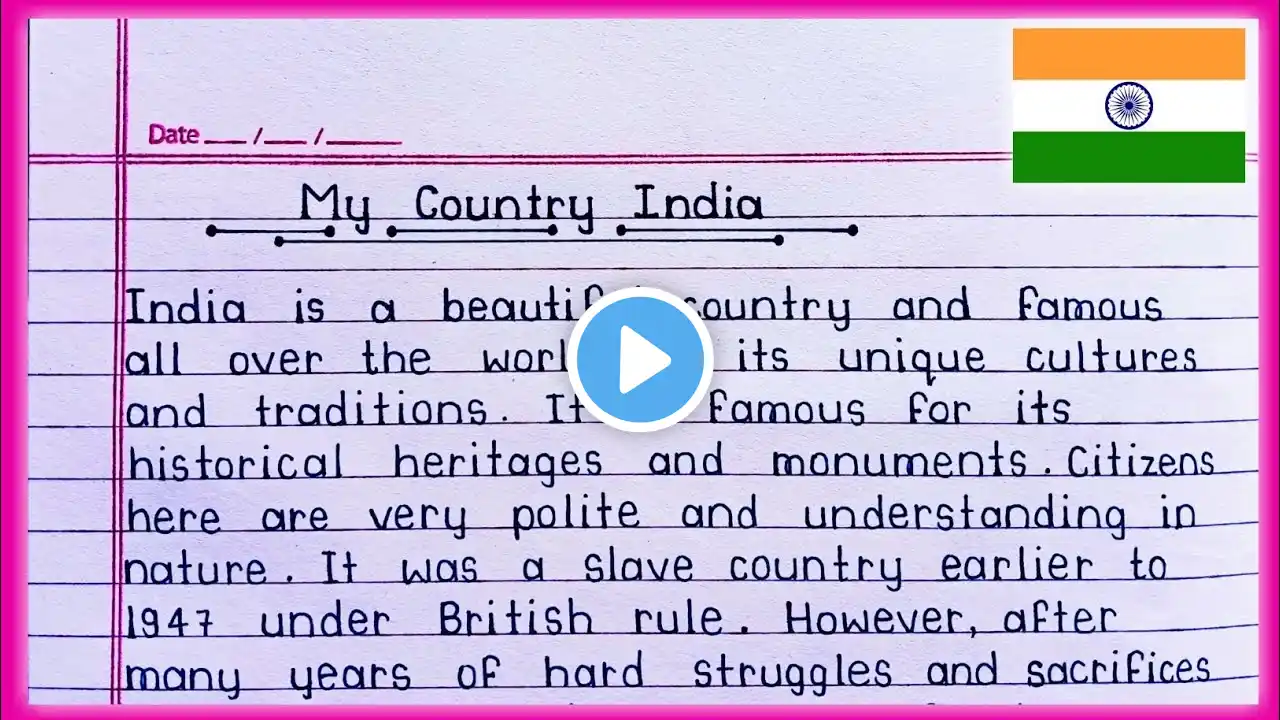 Date __/__/____
My Country India
India is a beautiful country and famous
all over the world its unique cultures
and traditions. It famous for its
historical heritages and monuments. Citizens
here are very polite and understanding in
nature. It was a slave country earlier to
1947 under British rule. However, after
many years of hard struggles and sacrifices